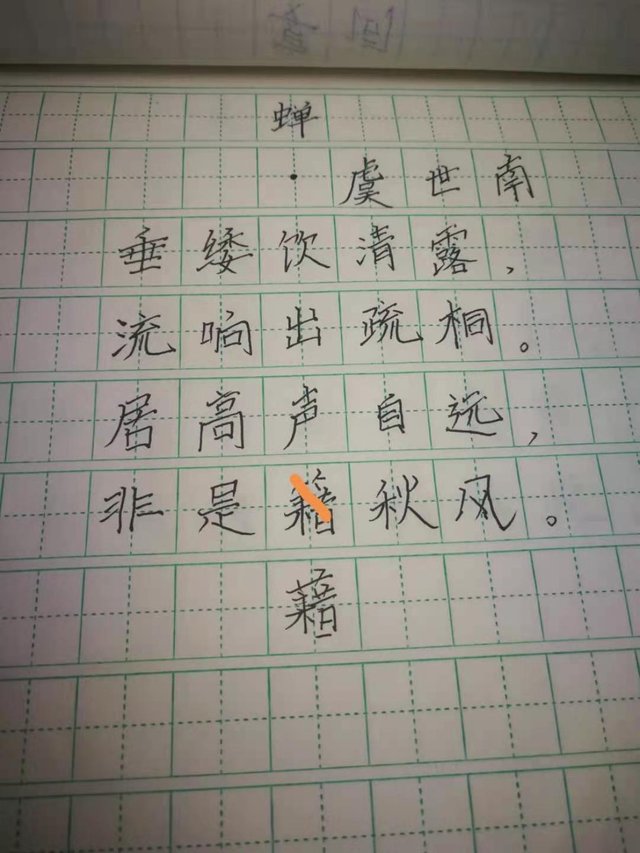 蝉
·虞世南
垂緌饮清露，
流响出疏桐。
居高声自远，
非是籍秋风。
藉